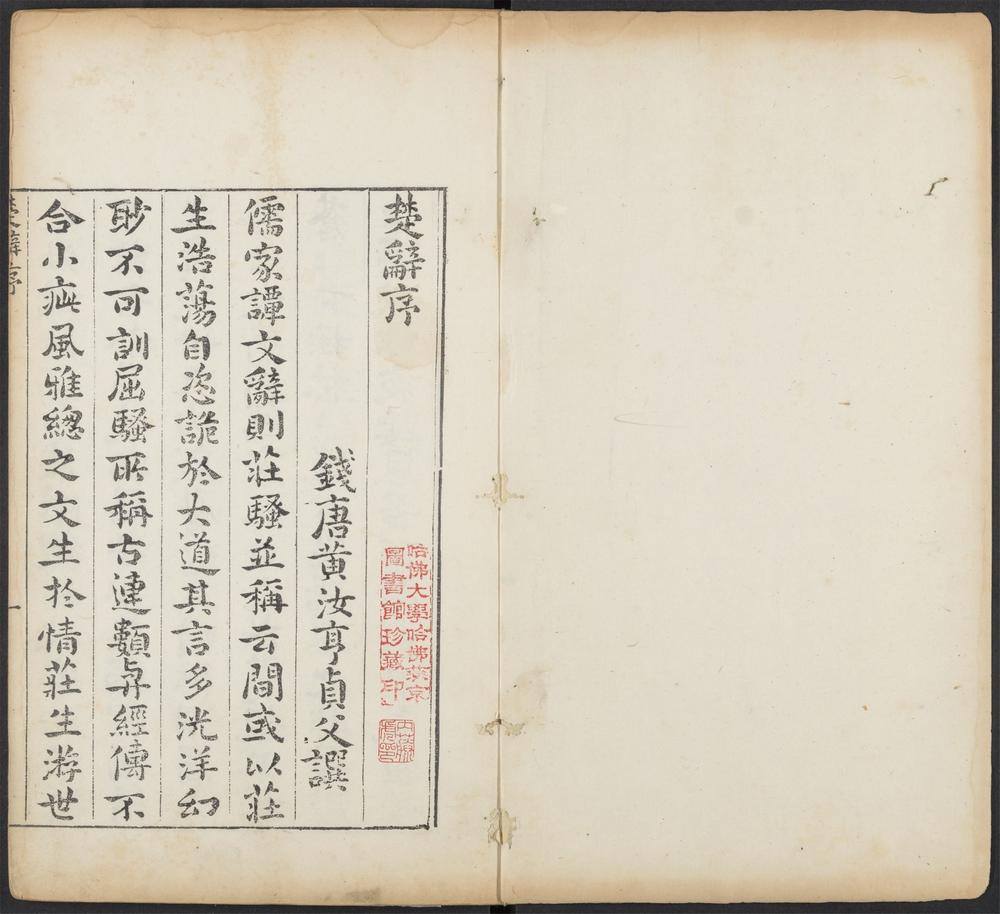 楚辭序
錢唐黃汝亨貞父譔
儒家譚文辭則莊騷並稱云間或以莊
生浩蕩自恣詭於大道其言多洸洋幻
眇不可訓屈騷所稱古連類與經傳不
合小疵風雅總之文生於情莊生游世
楚辭序
一
哈佛大學哈佛燕京
圖書館珍藏印